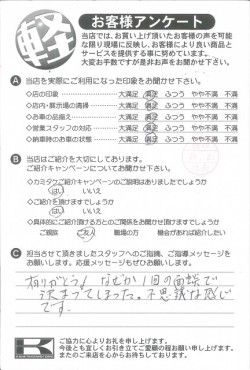 軽
お客様アンケート
当店では、お買い上げ頂いたお客様の声を可能
な限り現場に反映し、お客様により良い商品と
サービスを提供する事に努めています。
大変お手数ですが是非お声をお聞かせ下さい。
A 当店を実際にご利用になった印象をお聞かせ下さい。
◇店の印象 大満足 満足 ふつう やや不満 不満
◇店内・展示場の清掃 大満足 満足 ふつう やや不満 不満
◇お車の品揃え 大満足 満足 ふつう やや不満 不満
◇営業スタッフの対応 大満足 満足 ふつう やや不満 不満
◇納車時のお車の状態 大満足 満足 ふつう やや不満 不満
B 当店はご紹介を大切にしております。
ご紹介キャンペーンについてお聞かせ下さい。
◇カミタケご紹介キャンペーンのご説明はありましたでしょうか
はい いいえ
◇ご紹介を頂けますでしょうか
はい いいえ
◇具体的にご紹介頂ける方とのご関係をお聞かせ頂けますでしょうか
ご親族 ご友人 職場の方 機会があれば紹介したい
C 担当させて頂きましたスタッフへのご指摘、ご指導メッセージを
お願いします。応援メッセージもぜひお願いします。
ありがとう♩ なぜか1回の面談で
決まってしまった。不思議な感じ
です。
K
ご協力に心よりお礼を申し上げます。
今後とも宜しくお引き立てご愛顧の程お願い申し上げます。
またのご来店を心からお待ちしております。